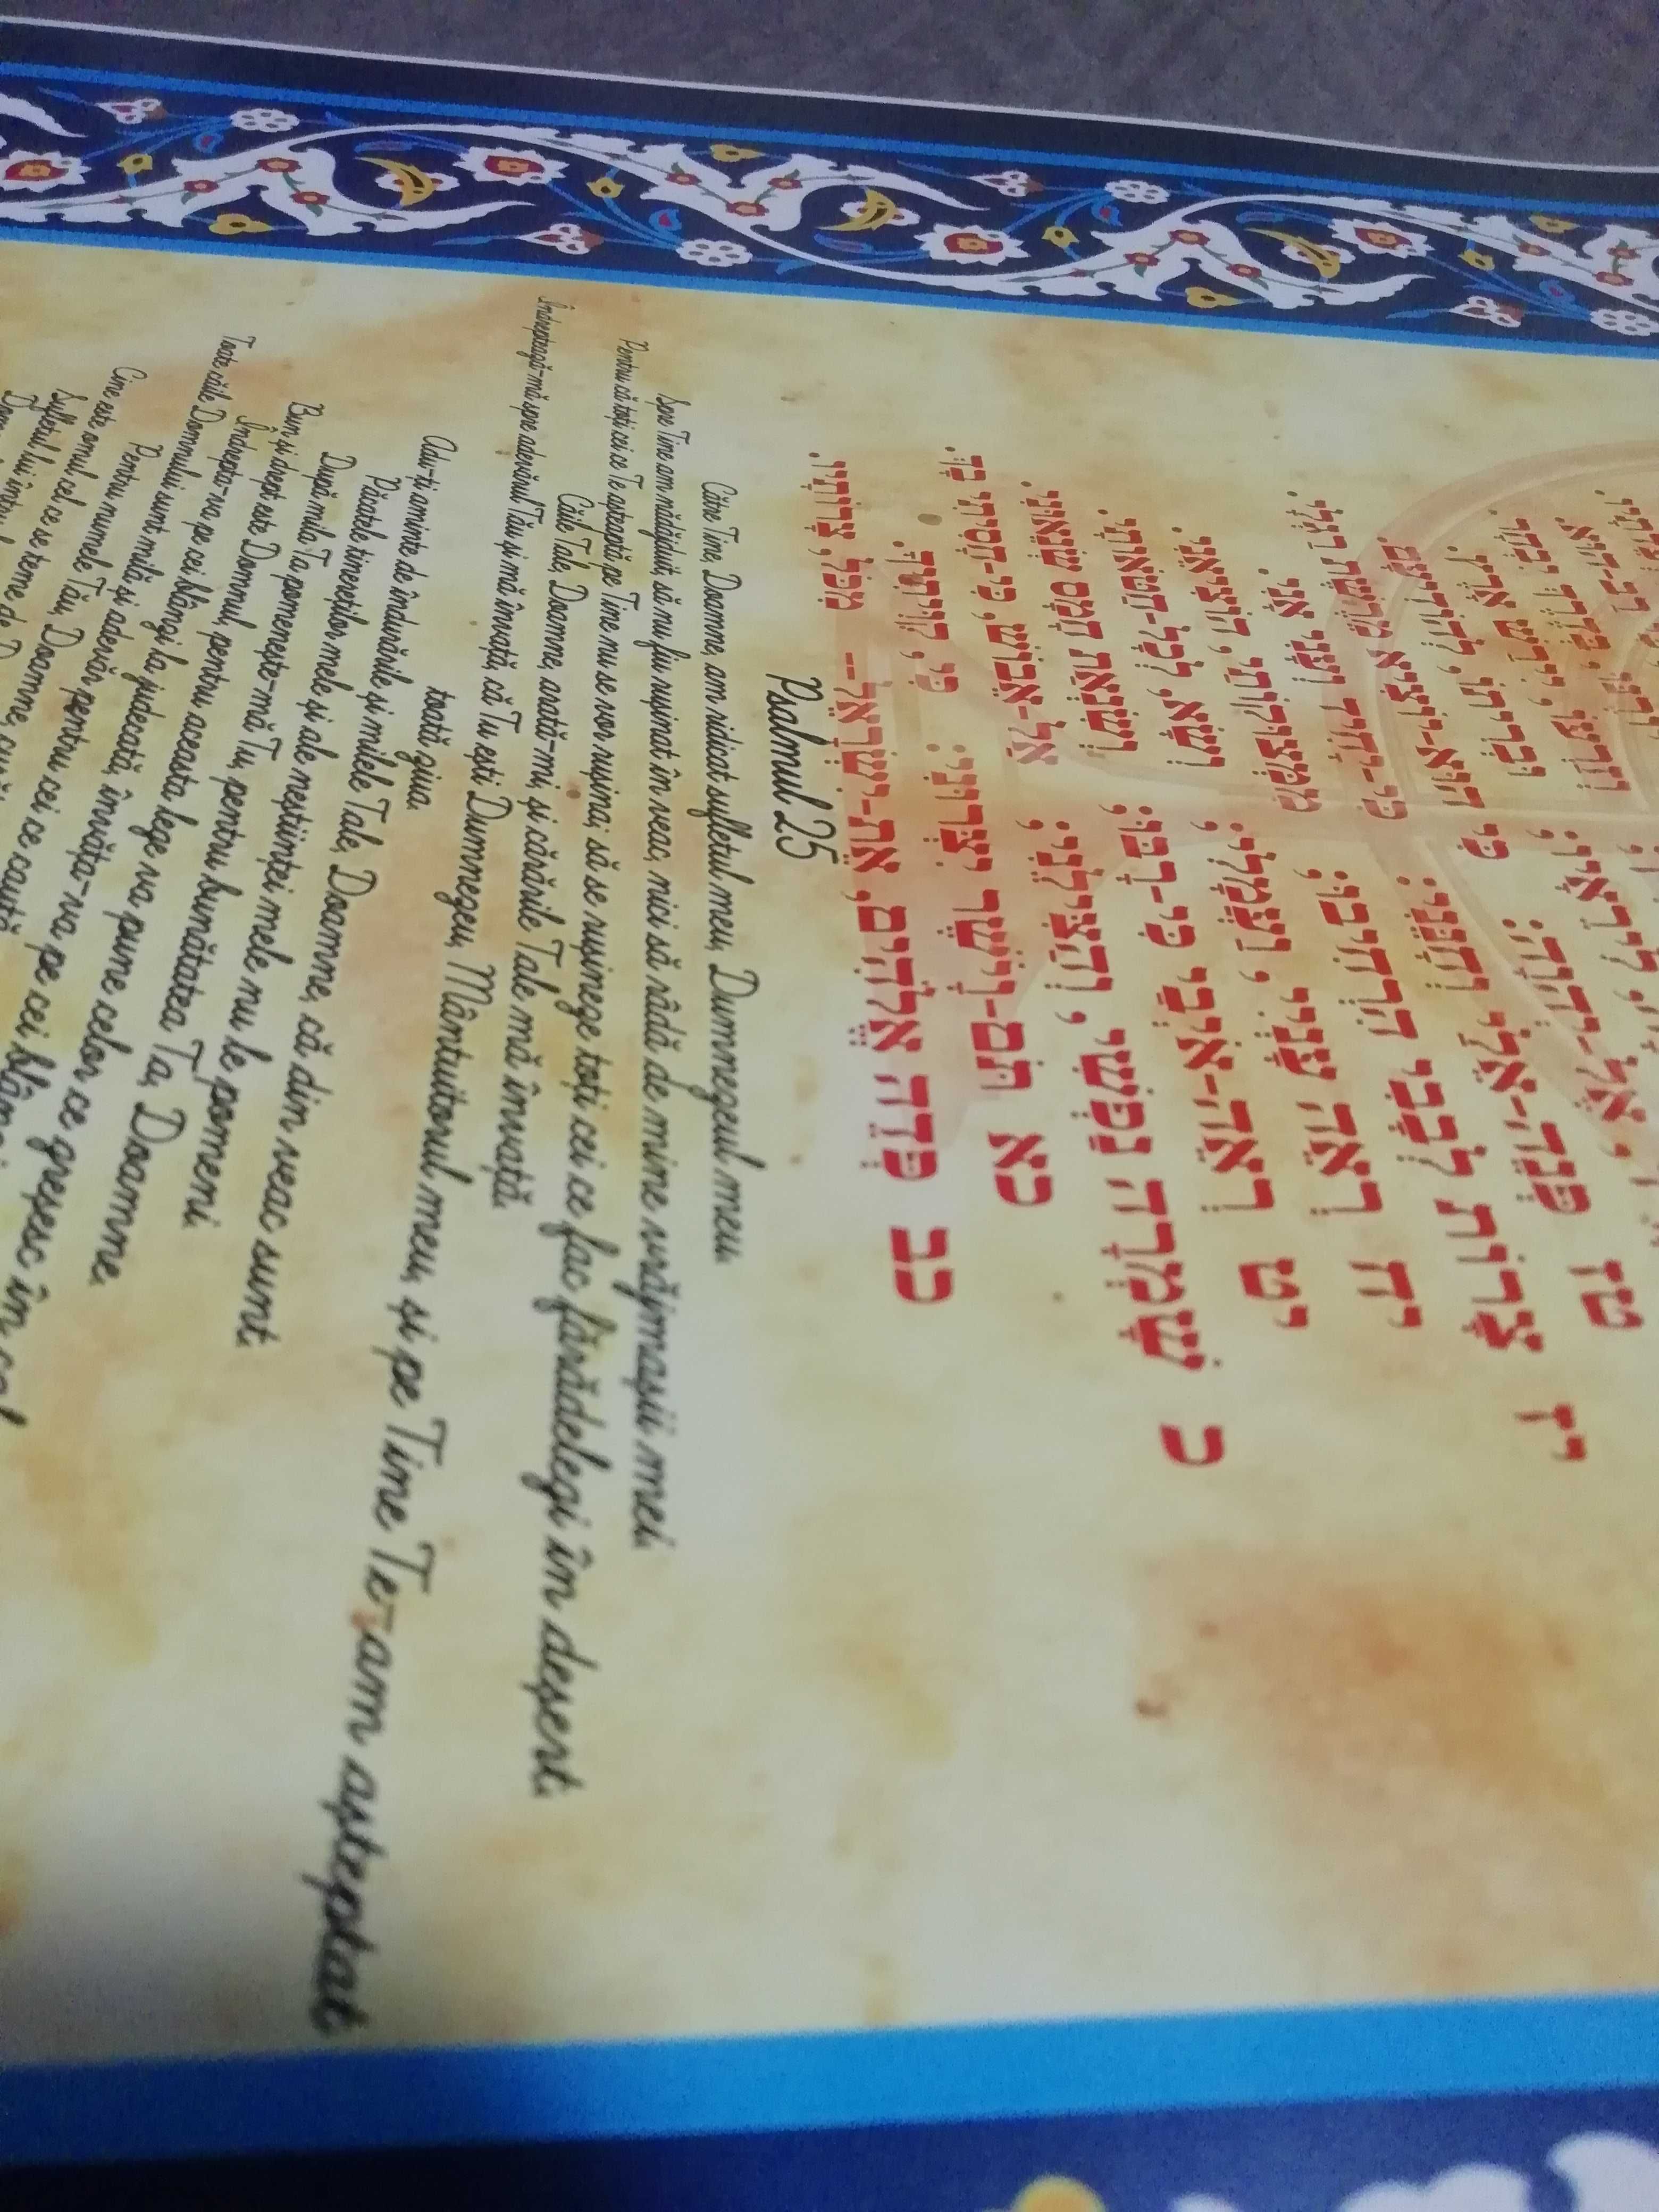 לִירֵאָיו; וּבְרִיתוֹ, לְהוֹדִיעָם.
אֶל-יְהוָה: כִּי הוּא-יוֹצִיא
טז פְּנֵה-אֵלַי וְחָנֵּנִי: כִּי-יָחִיד וְעָנִי אָנִי.
יז צָרוֹת לְבָבִי הִרְחִיבוּ; מִמְּצוּקוֹתַי, הוֹצִיאֵנִי.
יח רְאֵה עָנְיִי, וַעֲמָלִי; וְשָׂא, לְכָל-חַטֹּאותָי.
יט רְאֵה-אֹיְבַי כִּי-רָבּוּ; וְשִׂנְאַת חָמָס שְׂנֵאוּנִי.
כ שָׁמְרָה נַפְשִׁי, וְהַצִּילֵנִי;
אַל-אֵבוֹשׁ, כִּי-חָסִיתִי בָךְ.
כא תֹּם-וָיֹשֶׁר יִצְּרוּנִי: כִּי, קִוִּיתִיךָ.
כב פְּדֵה אֱלֹהִים, אֶת-יִשְׂרָאֵל-- מִכֹּל, צָרוֹתָיו.
Psalmul 25
Către Tine, Doamne, am ridicat sufletul meu, Dumnezeul meu.
Spre Tine am nădăjduit, să nu fiu rușinat în veac, nici să râdă de mine vrăjmașii mei.
Pentru că toți cei ce Te așteaptă pe Tine nu se vor rușina; să se rușineze toți cei ce fac fărădelegi în deșert.
Căile Tale, Doamne, arată-mi, și cărările Tale mă învață.
Îndreptează-mă spre adevărul Tău și mă învață, că Tu ești Dumnezeu, Mântuitorul meu, și pe Tine Te-am așteptat
toată ziua.
Adu-ți aminte de îndurările și milele Tale, Doamne, că din veac sunt.
Păcatele tinereților mele și ale neștiinței mele nu le pomeni.
După mila Ta pomenește-mă Tu, pentru bunătatea Ta, Doamne.
Bun și drept este Domnul, pentru aceasta lege va pune celor ce greșesc în cale.
Îndrepta-va pe cei blânzi la judecată, învăța-va pe cei blânzi
Toate căile Domnului sunt milă și adevăr pentru cei ce caută
Pentru numele Tău, Doamne, curăț
Cine este omul cel ce se teme de D
Sufletul lui întru